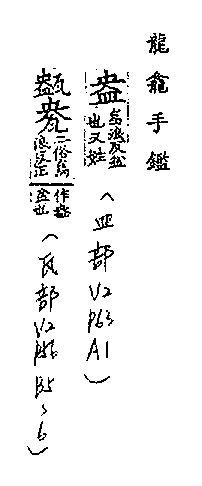 龍龕手鑑
盎 烏浪反盆也又姓
(皿部V2P63A1)
㼜 㿽 二俗烏浪反正作盎盆也
(瓦部V2P56B5、6)